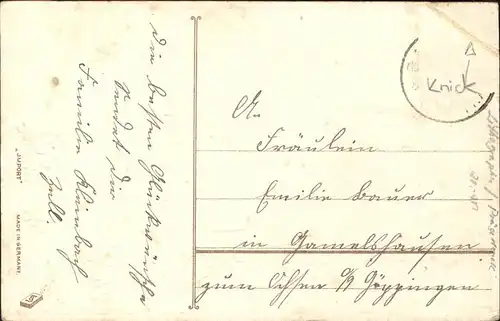 Die besten Glückwünsche
sendet dir
Familie Kleinbach
Zell.
„IMPORT"
MADE IN GERMANY.
Knick
An
Fräulein
Emilie Bauer
in Gamelshausen
zum Ochsen o/a Göppingen